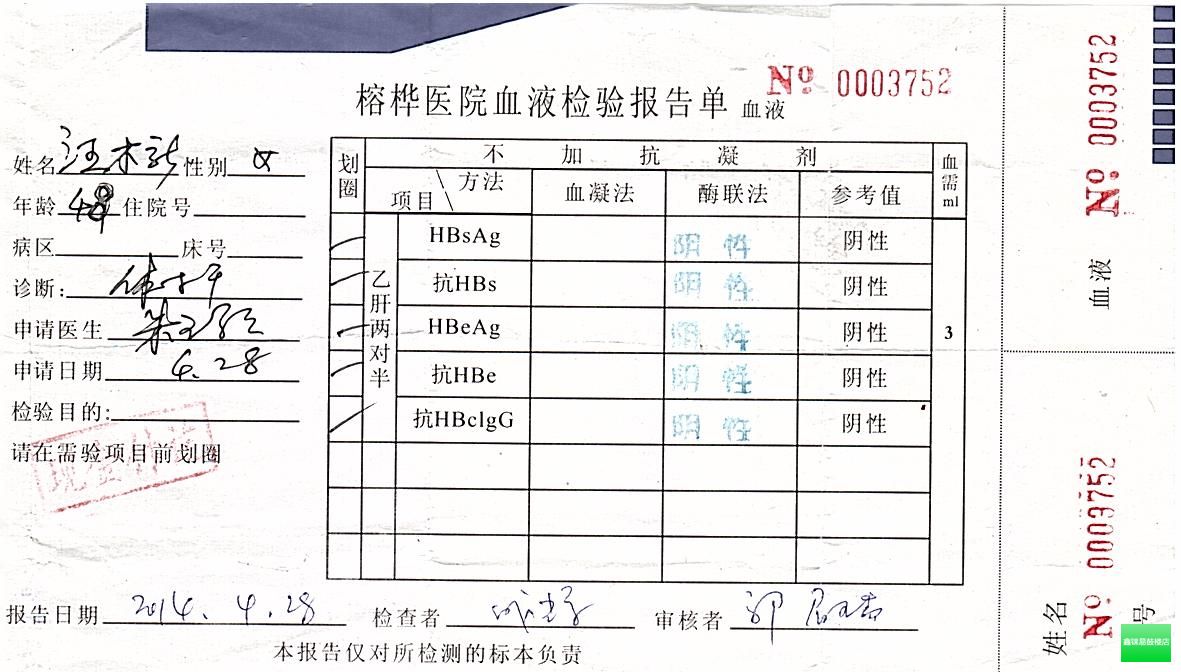 榕桦医院血液检验报告单 血液
№ 0003752
姓名 汪木新 性别 女
年龄 48 住院号
病区 床号
诊断:
申请医生
申请日期 4.28
检验目的:
请在需验项目前划圈
现金付讫
划圈 不加抗凝剂 血需ml
项目 方法 血凝法 酶联法 参考值
乙肝两对半
HBsAg 阴性 阴性
抗HBs 阴性 阴性
HBeAg 阴性 阴性
抗HBe 阴性 阴性
抗HBclgG 阴性 阴性
3
报告日期 2014.4.28 检查者 审核者
本报告仅对所检测的标本负责
血液 № 0003752
姓名 № 0003752
号
鑫锞易鼓楼店